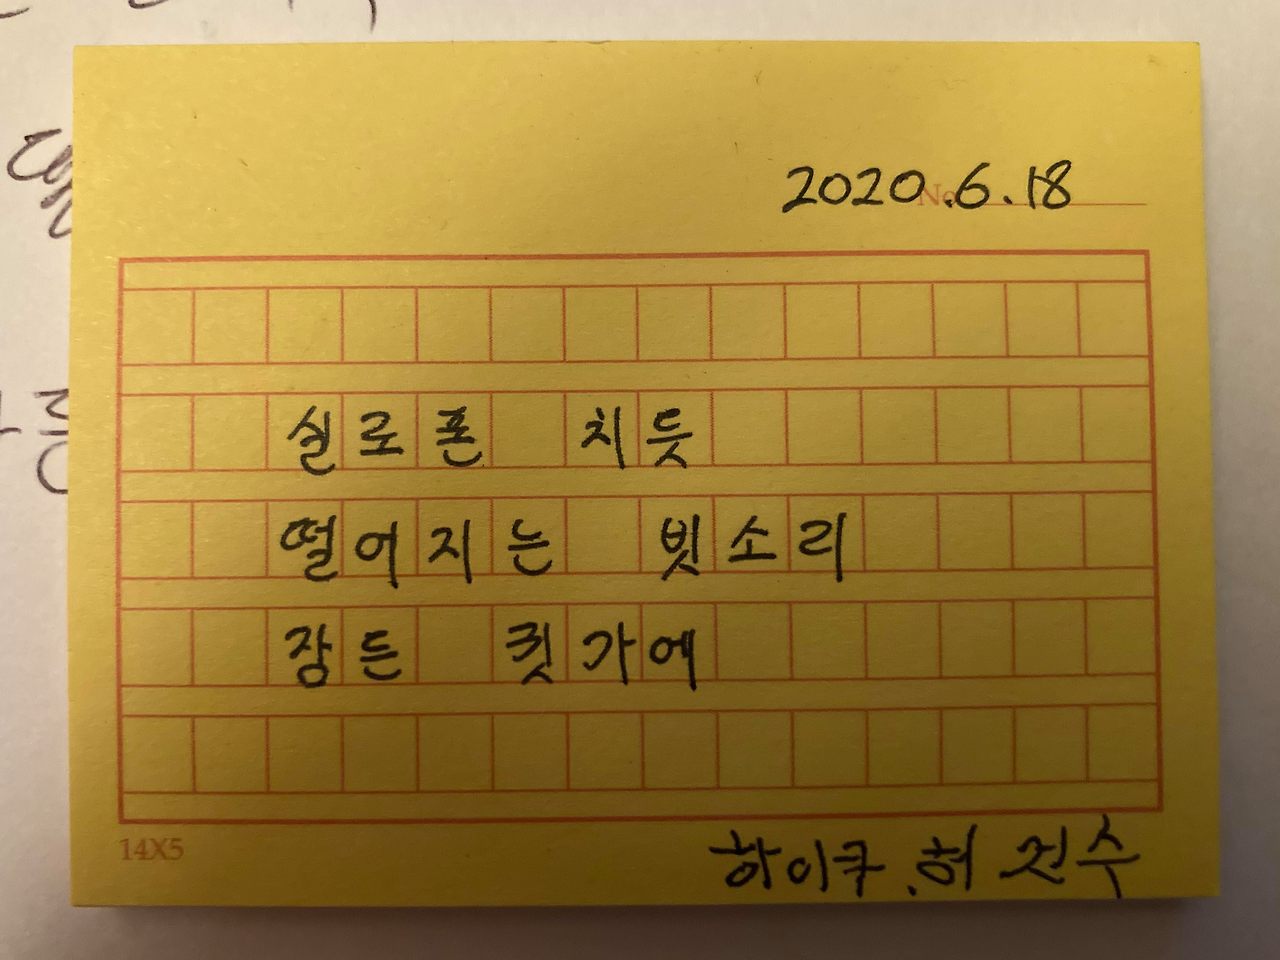 2020.6.18
No.
실로폰 치듯
떨어지는 빗소리
잠든 귓가에
14X5
하이쿠. 허